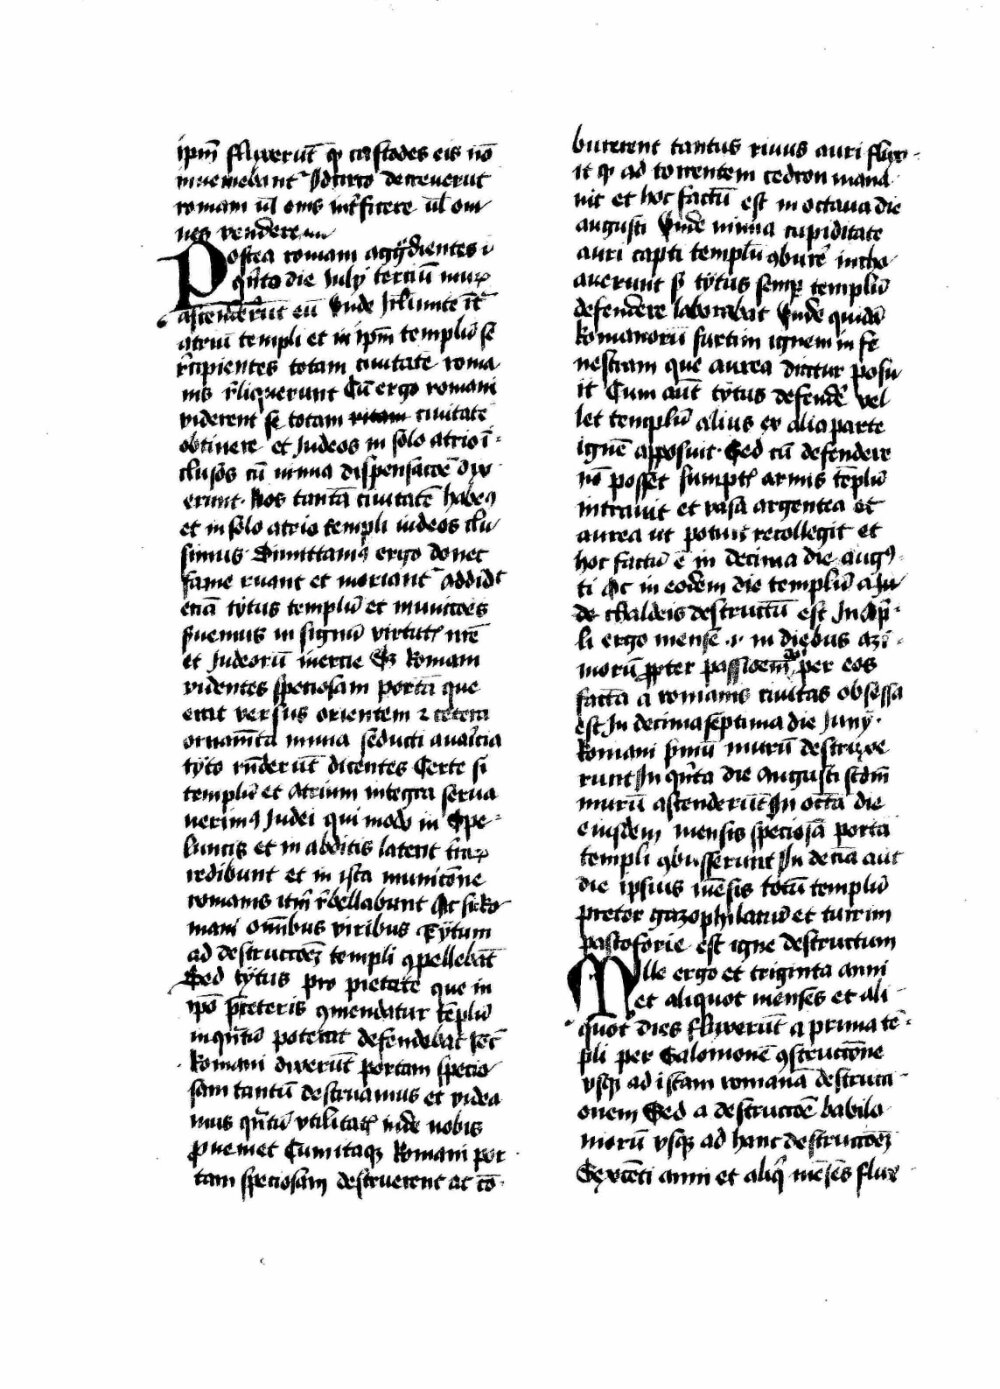 ipm̄ fluxerūt qꝫ custodes eis nō
inveniebant Idcirco decreverūt
romani vl̄ om̄s int̄ficere vl̄ om
nes vendere
Postea romani agg̈dientes i
qͥnta die Julij terciū murꝫ
ascenderūt eū Vnde
atriū templi et in ipm̄ templū se
r̄cipientes totam civitatē roma
nis r̄liquerunt Cū ergo romani
viderent se totam civitatē
obtinere et Judeos in solo atrio ī
clusos cū nimia dispensacōe dix
erunt Nos tantā civitatē habemꝰ
et in solo atrio templi iudeos clu
simus Dimittamꝰ ergo donec
fame ruant et moriant᷑ addidt
eciā tytus templū et municōes
s̄vemus in signū virtut᷑ nr̄e
et Judeorū inercie Sꝫ Romani
videntes speciosam portā que
erat versus orientem ⁊ cetera
ornam̄ta nimia seducti avar̄cia
tyto rn̄derūt dicentes Certe si
templū et atrium integra serva
verimꝰ Judei qui modo in spe
luncis et in abditis latent
redibunt et in ista municōne
romanis itm̄ r̄bellabunt Ac sic Ro
mani om̄ibus viribus Tytum
ad destruccōeꝫ templi ꝯpellebāt
Sed tytus pro pietate que in
ip̄o p̄ceteris ꝯmendatur tēplū
inqn̄tū poterat defendebat
Romani dixerūt portam specio
sam tantū destruamus et videa
mus qn̄tū vtilitat᷑ inde nobis
ꝓveniet Cumitaqꝫ Romani por
tam speciosam destruerent ac cō
burerent tantus rivus auri flux
it qꝫ ad torrentem cedron mana
vit et hoc factū est in octava die
augusti Vnde nimia cupiditate
auri capti templū ꝯburer̄ incho
averunt sꝫ tytus semꝑ templū
defendere laborabat Vnde quidā
Romanorū furtim ignem in fe
nestram que aurea dicitur posu
it Cum aūt tytus defendē vel
let templū alius ex alia parte
ignē apposuit Sed cū defendere
nō posset sumptꝭ armis tēplū
intravit et vasa argentea et
aurea ut potuit recollegit et
hoc factū ē in decima die augꝰ
ti Ac in eodem die templū
de chaldeis destructū est In Ap̄
li ergo mense in diebus azi
morū ꝓpter passioem̄ per eos
factā a romanis civitas obsessa
est In decima septima die Junij
Romani pͥmū murū destruxe
runt In qͥnta die Augusti scd̄m
murū ascenderūt In octā die
eiusdem mensis speciosā portā
templi ꝯbusserunt In deciā aūt
die ipsius mēsis totū templū
preter gazophilaciū et turrim
pastoforie est igne destructum
Mille ergo et triginta anni
et aliquot menses et ali
quot dies fluxerūt a prima tē
pli per Salomonē ꝯstruccōne
vsqꝫ ad istam romanā destructi
onem Sed a destruccōe babilo
niorū vsqꝫ ad hanc destruccōeꝫ
Sexcēti anni et aliq̄ mēses flux